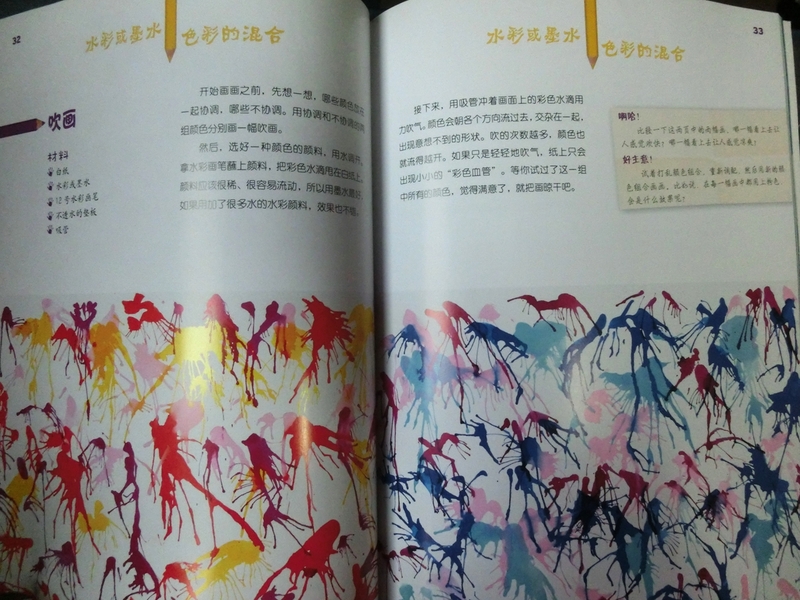 32
水彩或墨水 色彩的混合
吹画
材料
白纸
水彩或墨水
12号水彩画笔
不透水的垫板
吸管
开始画画之前，先想一想，哪些颜色
一起协调，哪些不协调。用协调和不协调的
组颜色分别画一幅吹画。
然后，选好一种颜色的颜料，用水调
拿水彩画笔蘸上颜料，把彩色水滴甩在白纸上。
颜料应该很稀、很容易流动，所以用墨水
如果用加了很多水的水彩颜料，效果也不错。
33
水彩或墨水 色彩的混合
接下来，用吸管冲着画面上的彩色水滴用
力吹气。颜色会朝各个方向流过去，交杂在一起，
出现意想不到的形状。吹的次数越多，颜色也
就流得越开。如果只是轻轻地吹气，纸上只会
出现小小的“彩色血管”。等你试过了这一组
中所有的颜色，觉得满意了，就把画晾干吧。
比较一下这两页中的两幅画，哪一幅看上去让
人感觉欢快？哪一幅看上去让人感觉
好主意！
试着打乱颜色组合，重新调配，然后用新的颜
色组合画画。比如说，在每一幅画中都用上粉色，
会是什么效果呢？